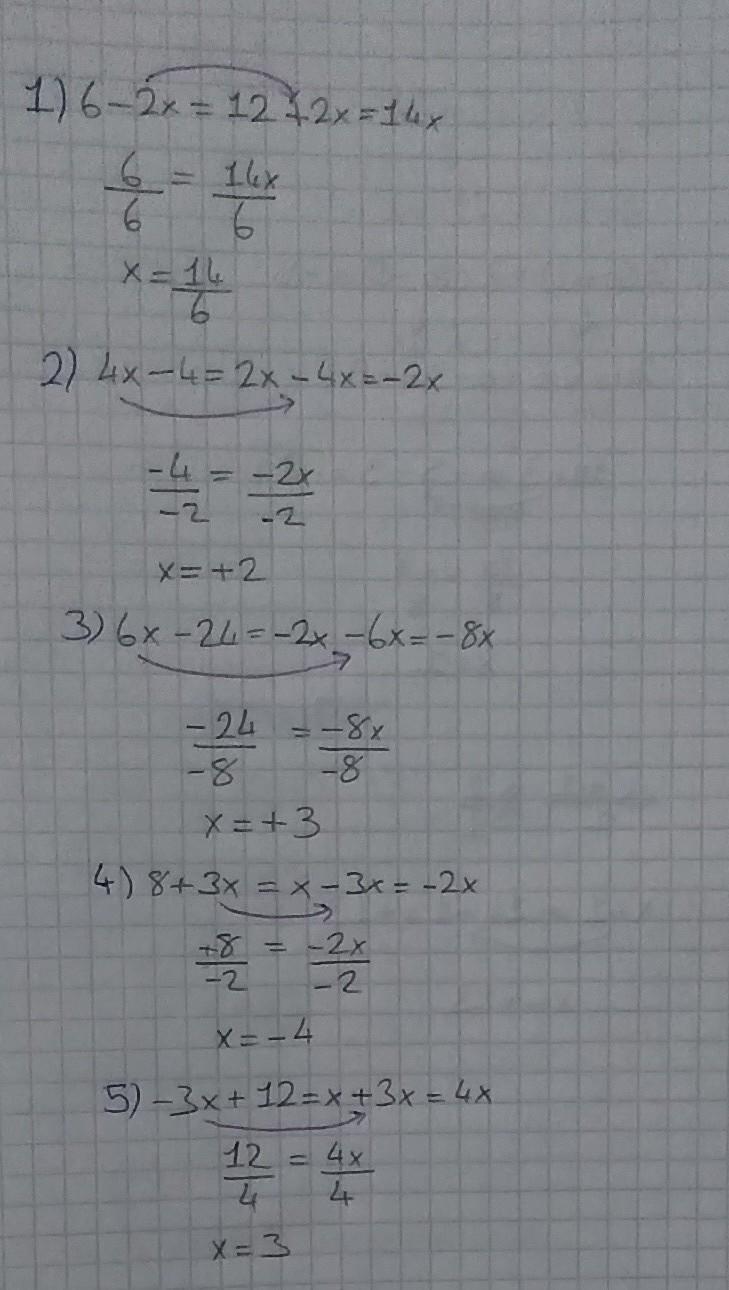 1) 6-2x = 12+2x=14x
6/6 = 14x/6
x = 14/6
2) 4x-4=2x-4x=-2x
-4/-2 = -2x/-2
x=+2
3) 6x-24=-2x-6x=-8x
-24/-8 = -8x/-8
x=+3
4) 8+3x=x-3x=-2x
+8/-2 = -2x/-2
x=-4
5) -3x+12=x+3x=4x
12/4 = 4x/4
x=3